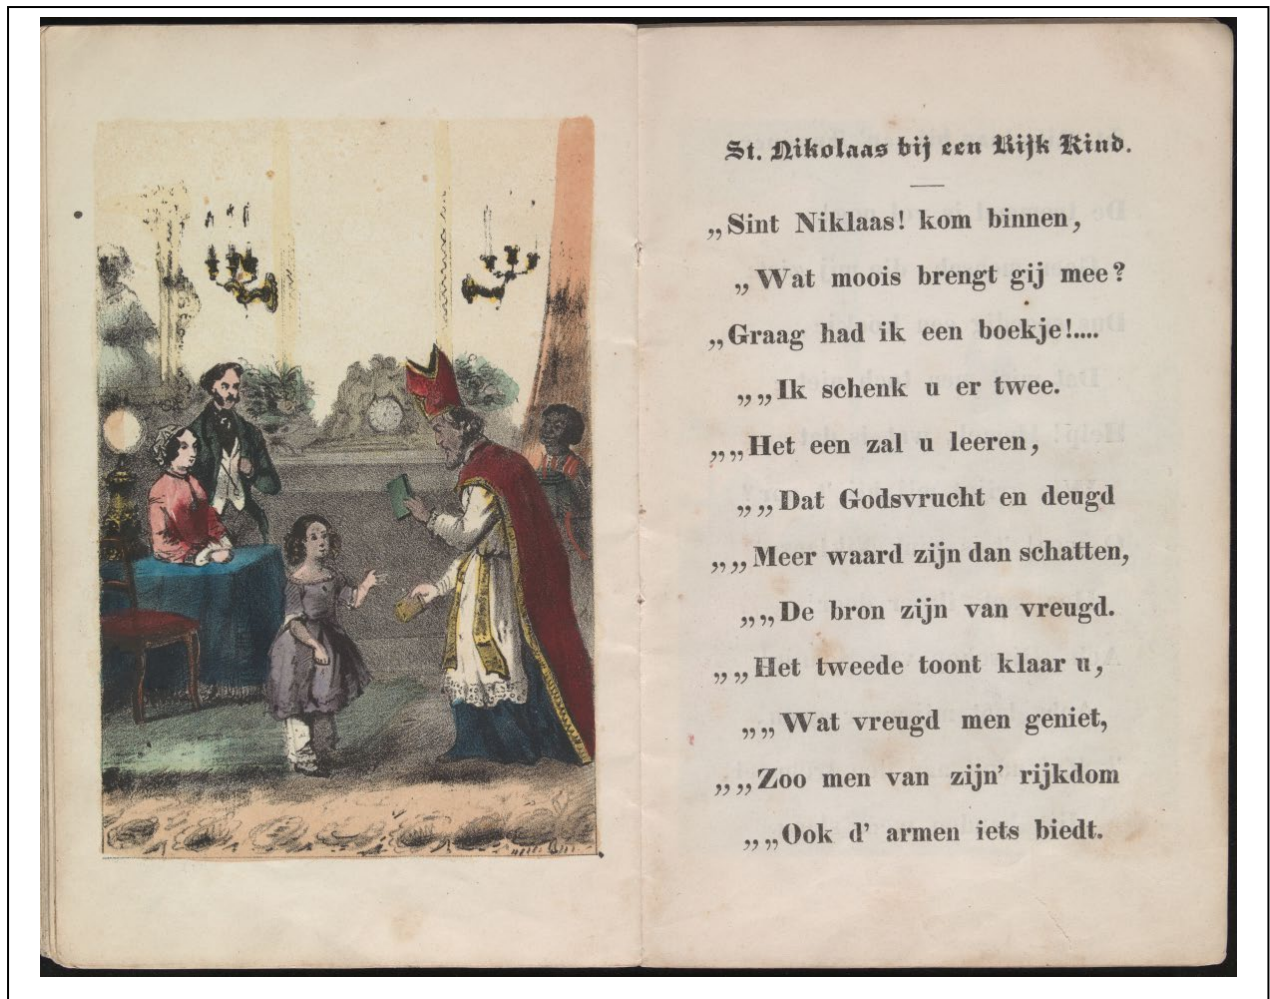 St. Nikolaas bij een Rijk Kind.
„Sint Niklaas! kom binnen,
„Wat moois brengt gij mee?
„Graag had ik een boekje!....
„„Ik schenk u er twee.
„„Het een zal u leeren,
„„Dat Godsvrucht en deugd
„„Meer waard zijn dan schatten,
„„De bron zijn van vreugd.
„„Het tweede toont klaar u,
„„Wat vreugd men geniet,
„„Zoo men van zijn' rijkdom
„„Ook d' armen iets biedt.